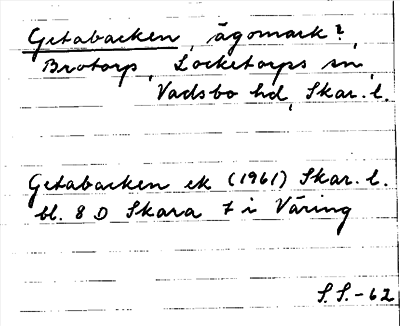 Getabacken, ägomark?,
Brotorp, Locketorps sn,
Vadsbo hd, Skar. l.
Getabacken ek (1961) Skar. l.
bl. 8 D Skara 7 i Väring
S. S. -62